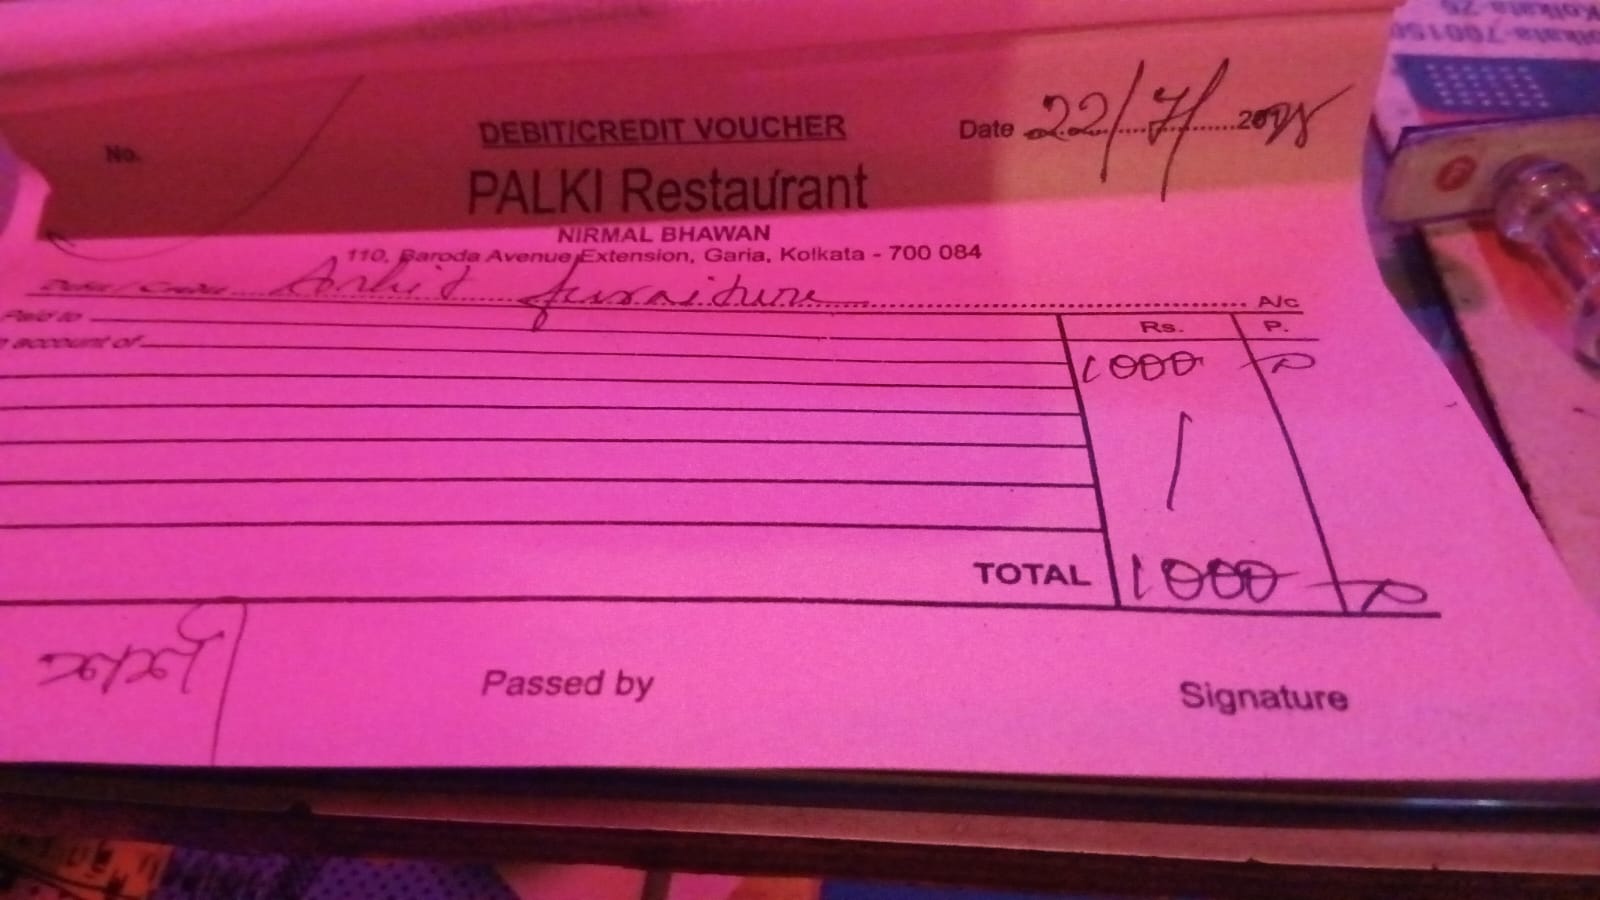 No.
DEBIT/CREDIT VOUCHER
Date 22/7/
PALKI Restaurant
NIRMAL BHAWAN
110, Baroda Avenue Extension, Garia, Kolkata - 700 084
Debit / Credit furniture A/c
Paid to
account of
Rs. P.
1000
TOTAL 1000
Passed by
Signature